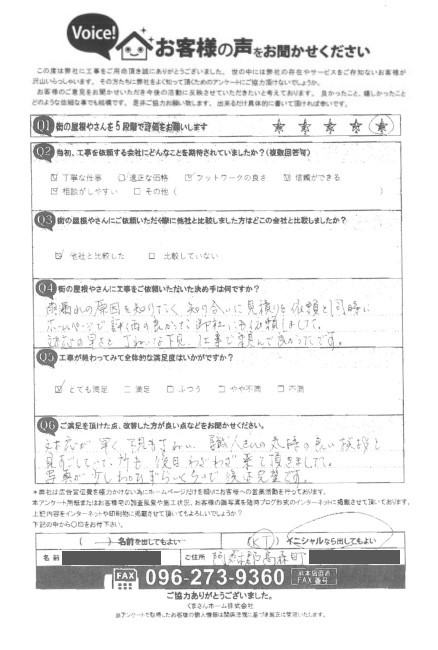 Voice!
お客様の声をお聞かせください
この度は弊社に工事をご用命頂き誠にありがとうございました。世の中には弊社の存在やサービスをご存知ないお客様が
沢山いらっしゃいます。その方たちに弊社をよく知って頂くためのアンケートにご協力頂けないでしょうか。
お客様のご意見をお聞かせいただき今後の活動に反映させていただきたいと考えております。良かったこと、嬉しかったこと
どのような些細な事でも結構です。是非ご協力お願い致します。出来るだけ具体的に書いて頂ければ幸いです。
Q1 街の屋根やさんを5段階で評価をお願いします
Q2 当初、工事を依頼する会社にどんなことを期待されていましたか？(複数回答可)
☑ 丁寧な仕事 □適正な価格 ☑ フットワークの良さ ☑ 信頼ができる
☑ 相談がしやすい □ その他 ( )
Q3 街の屋根やさんにご依頼いただく際に他社と比較しました方はどこの会社と比較しましたか？
☑ 他社と比較した □ 比較していない
Q4 街の屋根やさんに工事をご依頼いただいた決め手は何ですか？
雨漏れの原因を知りたく、知り合いに見積りを依頼と同時に
ホームページで評価の良かった御社に
対応の早さと
Q5 工事が終わってみて全体的な満足度はいかがですか？
☑ とても満足 □ 満足 □ ふつう □ やや不満 □ 不満
Q6 ご満足を頂けた点、改善した方が良い点などをお聞かせください。
対応が早く 職人さんの気持の良い挨拶と
後日わざわざ来て頂きました。
写真が少しわかりずらい
＊弊社は広告宣伝費を極力かけない為にホームページだけを頼りにお客様への営業活動を行っております。
本アンケート用紙またはお客様宅の調査風景や施工状況、お客様の顔写真を随時ブログ形式のインターネットに掲載させて頂いております。
上記内容をインターネットや印刷物に掲載させて頂いてもよろしいでしょうか？
下記の中から○印をお付下さい。
( ) 名前を出してもよい (K T) イニシャルなら出してもよい
名前 ご住所 阿蘇郡高森町
FAX 096-273-9360 熊本店直通 FAX番号
ご協力ありがとうございました。
くまさんホーム株式会社
当アンケートで取得したお客様の個人情報は関係法規に基づき厳正に管理いたします。